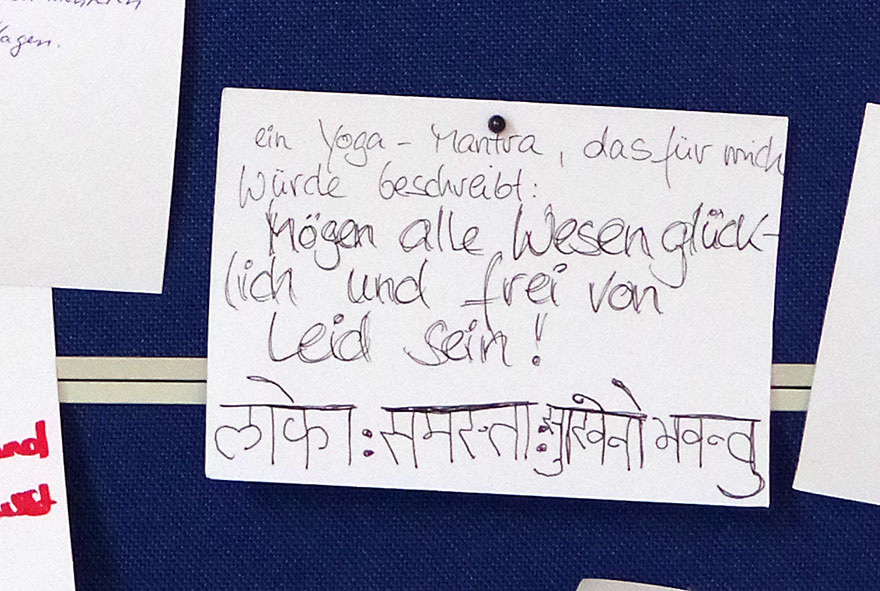 lagen.
ein Yoga-Mantra, das für mich
Würde beschreibt:
Mögen alle Wesen glück-
lich und frei von
Leid sein!
लोकाः समस्ताः सुखिनो भवन्तु